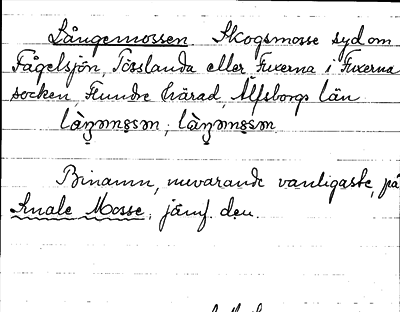 Långemossen Skogsmosse syd om
Fågelsjön, Tösslanda eller Fuxerna i Fuxerna
socken, Flundre härad, Älfsborgs län
Binamn, nuvarande vanligaste, på
Snale Mosse, jämf. den.